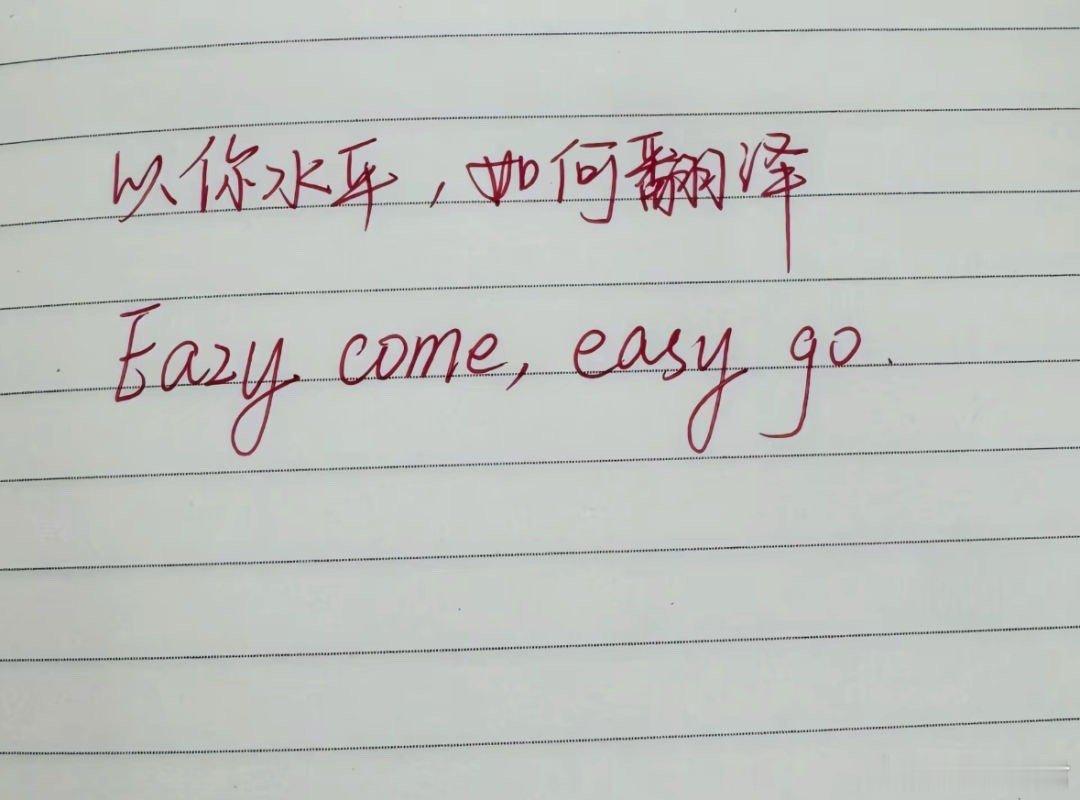 以你水平,如何翻译
Eazy come, easy go.